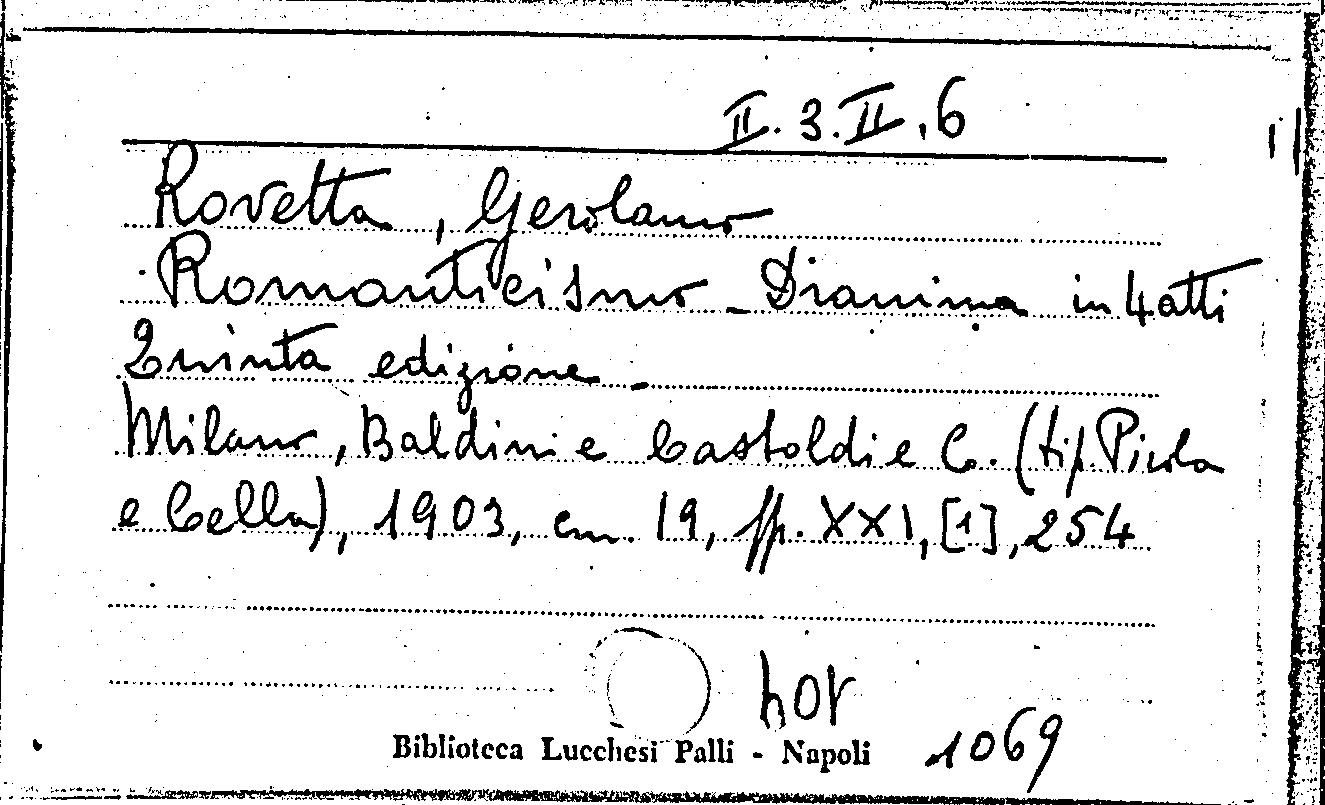 II. 3. II. 6
Rovetta, Gerolamo
Romanticismo - Dramma in 4 atti
Quinta edizione -
Milano, Baldini e Castoldi e C. (tip. Pirola
e Cella), 1903, cm. 19, pp. XXI, [1], 254
Biblioteca Lucchesi Palli - Napoli 1069